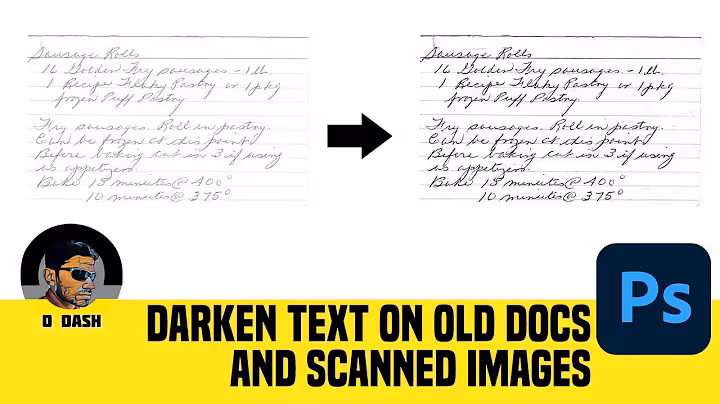 Sausage Rolls
16 Golden Fry sausages - 1 lb.
1 Recipe Flaky Pastry or 1 pkg
frozen Puff Pastry.
Fry sausages. Roll in pastry.
Can be frozen at this point
Before baking cut in 3 if using
as appetizers.
Bake 15 minutes @ 400°
10 minutes @ 375°
Sausage Rolls
16 Golden Fry sausages - 1 lb.
1 Recipe Flaky Pastry or 1 pkg
frozen Puff Pastry.
Fry sausages. Roll in pastry.
Can be frozen at this point
Before baking cut in 3 if using
as appetizers.
Bake 15 minutes @ 400°
10 minutes @ 375°
O DASH
DARKEN TEXT ON OLD DOCS
AND SCANNED IMAGES
Ps